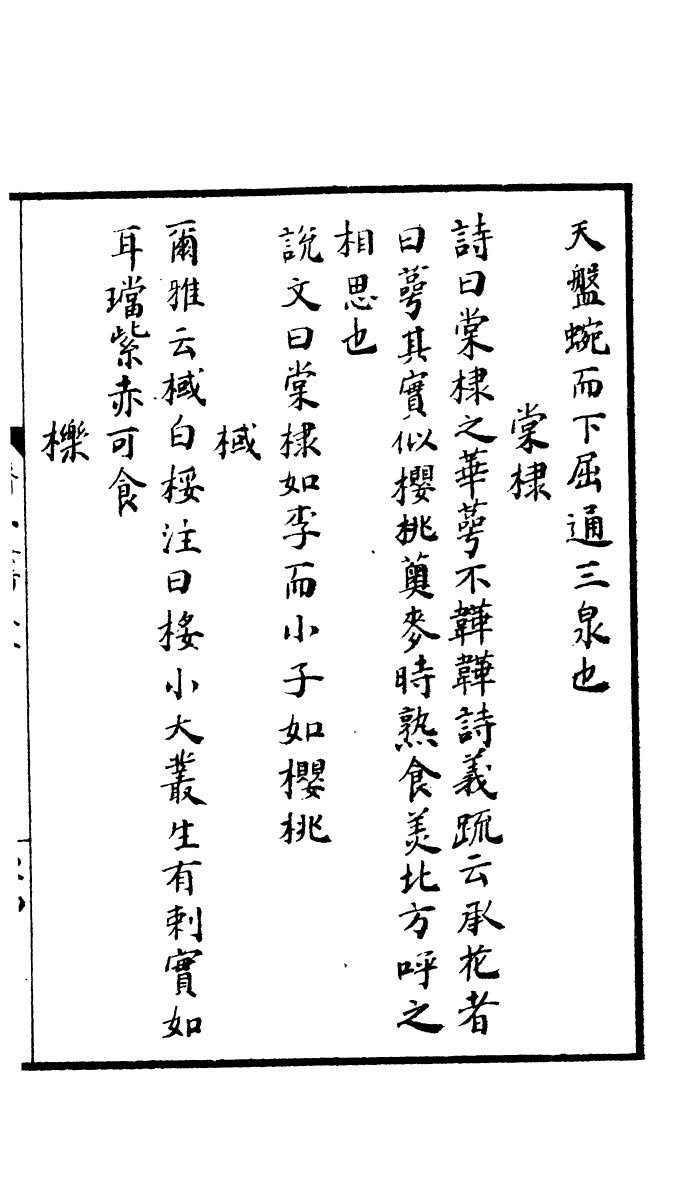 天盤蜿而下屈通三泉也
棠棣
詩曰棠棣之華萼不韡韡詩義疏云承花者
曰萼其實似櫻桃薁麥時熟食美北方呼之
相思也
說文曰棠棣如李而小子如櫻桃
棫
爾雅云棫白桵注曰桵小大叢生有刺實如
耳璫紫赤可食
櫟